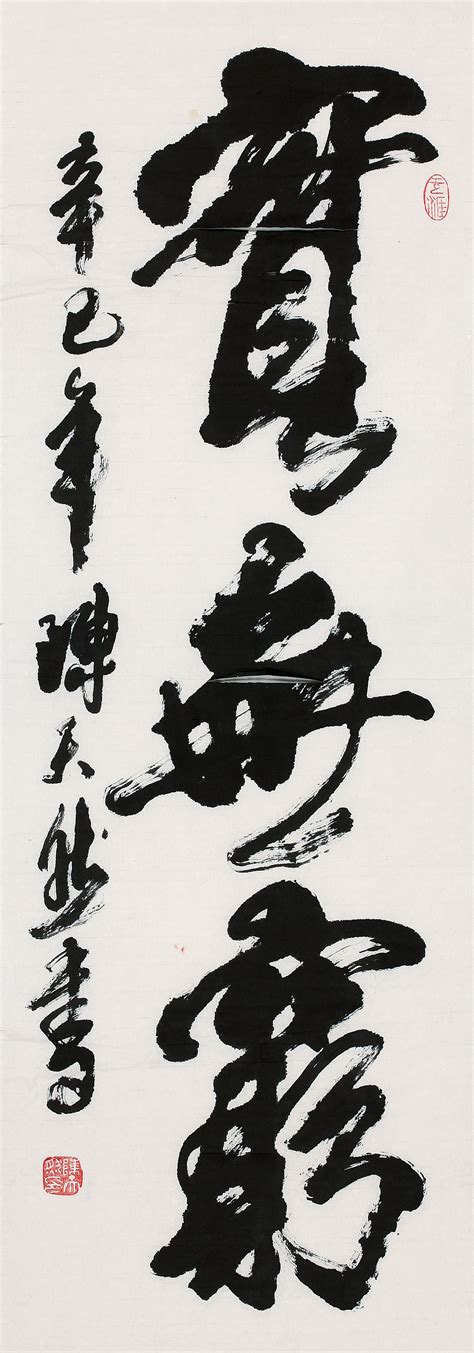 實無窮
辛巳年陳天然書